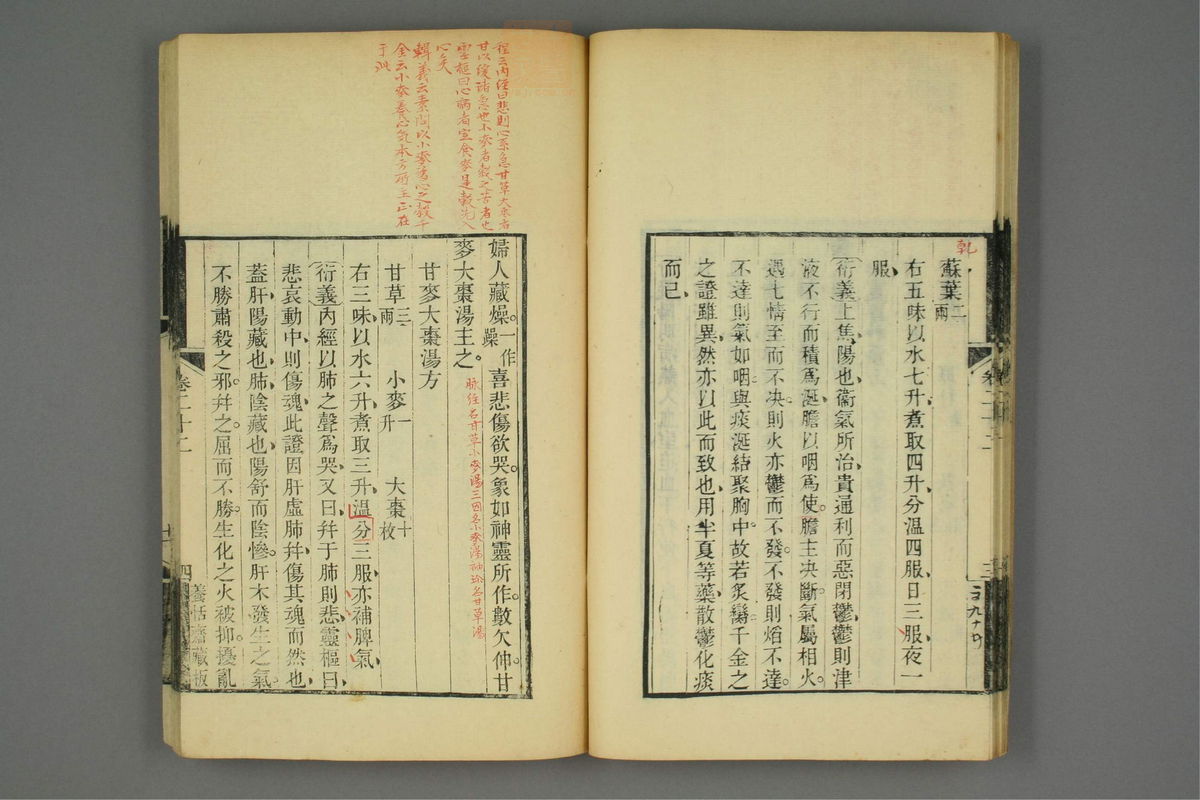 乾
蘇葉二兩
右五味以水七升煮取四升分溫四服日三服夜一
服
衍義上焦陽也衞氣所治貴通利而惡閉鬱鬱則津
液不行而積爲涎膽以咽爲使膽主決斷氣屬相火
遇七情至而不決則火亦鬱而不發不發則焰不達
不達則氣如咽與痰涎結聚胸中故若炙臠千金之
之證雖異然亦以此而致也用半夏等藥散鬱化痰
而已
程云內經曰悲則心系急甘草大棗者
甘以緩諸急也小麥者穀之苦者也
靈樞曰心病者宜食麥是穀先入
心矣
輯義云素問以小麥爲心之穀千
金云小麥養心氣本方所主正在
于此
婦人藏燥一作躁喜悲傷欲哭象如神靈所作數欠伸甘
麥大棗湯主之
脉經名甘草小麥湯三因名小麥湯袖珍名甘草湯
甘麥大棗湯方
甘草三兩 小麥一升 大棗十枚
右三味以水六升煮取三升溫分三服亦補脾氣
衍義內經以肺之聲爲哭又曰幷于肺則悲靈樞曰
悲哀動中則傷魂此證因肝虛肺幷傷其魂而然也
蓋肝陽藏也肺陰藏也陽舒而陰慘肝木發生之氣
不勝肅殺之邪幷之屈而不勝生化之火被抑擾亂
卷二十二
四
養恬齋藏板